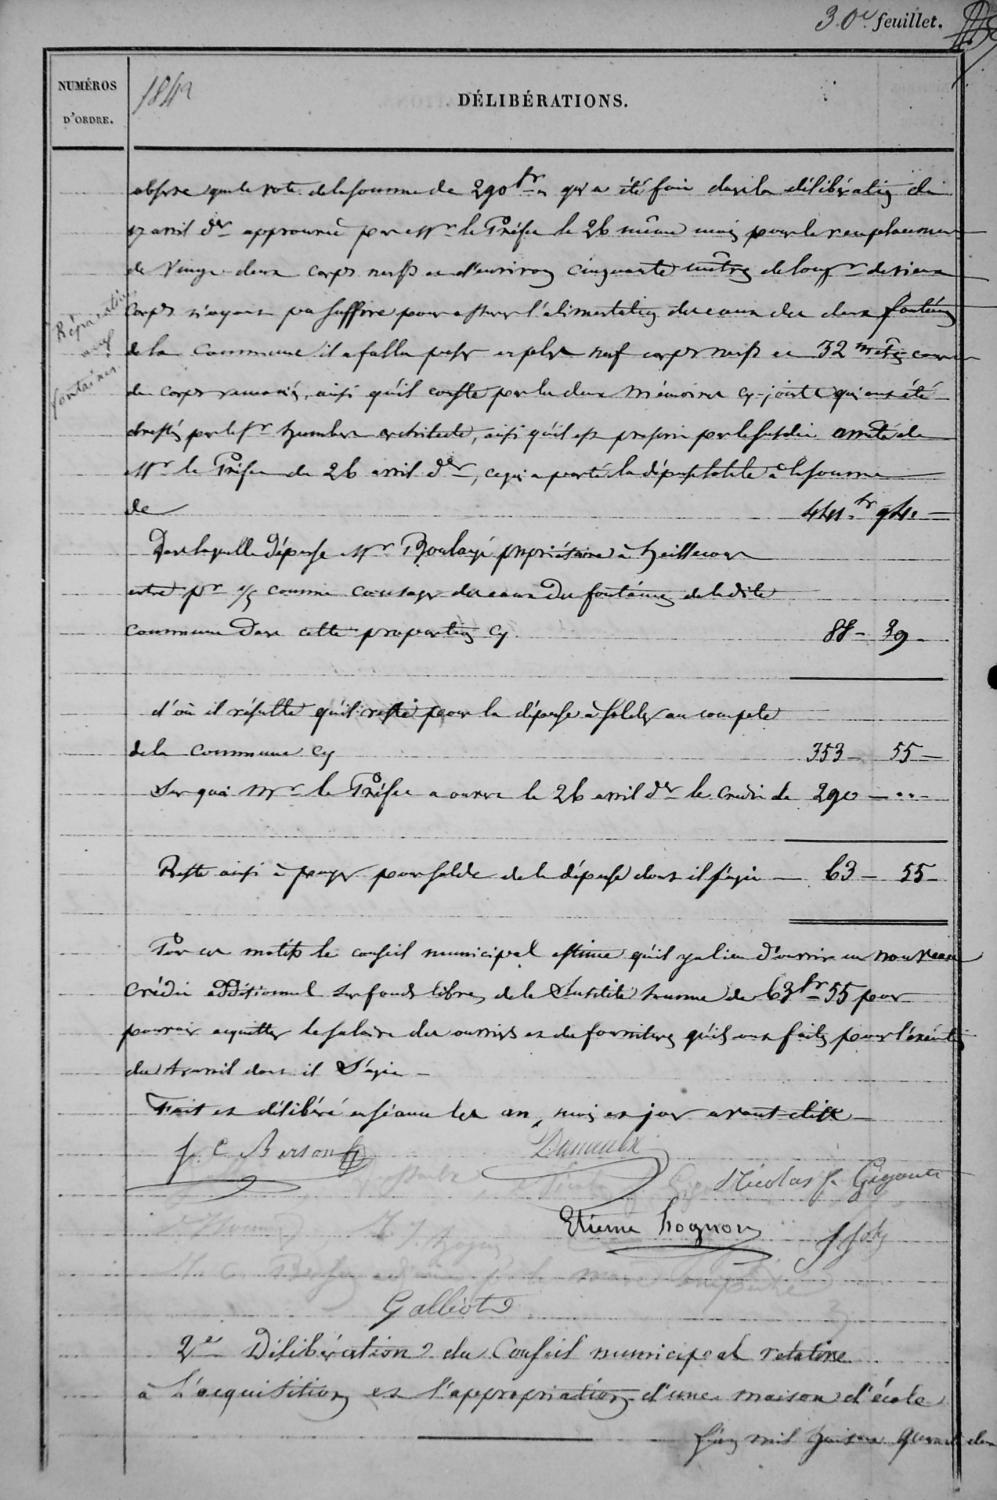 30e feuillet.
NUMÉROS
D'ORDRE.
1842
DÉLIBÉRATIONS.
observe que le vote de la somme de 290 fr qui a été fait dans la délibération du
17 avril der approuvée par Mr le Préfet le 26 même mois pour le remplacement
de vingt deux corps neufs et d'environ cinquante mètres de de vieux
Réparations
aux
fontaines
corps n'ayant pu suffire pour assurer l'alimentation des eaux des deux fontaines
de la Commune il a fallu poser en plus neuf corps neufs et 32 mètres
de corps remaniés, ainsi qu'il conste par les deux mémoires cy-joints qui ont été
dressés par le Sr humbert architecte, ainsi qu'il est prescrit par le susdit arrêté de
Mr le Préfet du 26 avril der, ce qui a porté la dépense totale à la somme
de 441 fr 94
Dans laquelle dépense Mr Boulangé propriétaire à heillecourt
entre pr 1/5 comme co-usager des eaux des fontaines de la dite
commune dans cette proportion cy 88 - 39 -
d'où il résulte qu'il reste pour la dépense à solder au compte
de la commune cy 353 - 55 -
Sur quoi Mr le Préfet a ouvert le 26 avril der le crédit de 290 - ..
Reste ainsi à payer pour solde de la dépense dont il s'agit 63 - 55 -
Par ces motifs le conseil municipal estime qu'il y a lieu d'ouvrir un nouveau
crédit additionnel sur fonds libres de la susdite somme de 63 fr 55 pour
pouvoir acquitter le salaire des ouvriers et des fournitures qu'ils ont faites pour l'exécution
du travail dont il s'agit -
Fait et délibéré en séance les an, mois et jour avant dits
J. C. Berson
Nicolas f. Gégout
Etienne hognon
Galliot
2e Délibération du Conseil municipal relative
à l'acquisition et l'appropriation d'une maison d'école
mil huit cent quarante deux